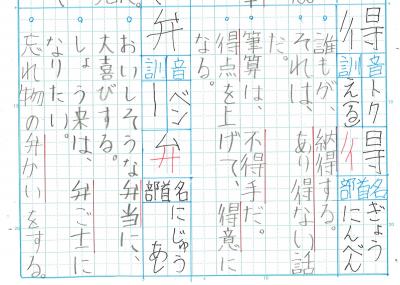 得
音 トク
訓 える
得
部首名 ぎょうにんべん
誰もが、納得する。
それは、あり得ない話
だ。
筆算は、不得手だ。
得点を上げて、得意に
なる。
弁
音 ベン
訓 ー
弁
部首名 にじゅうあし
おいしそうな弁当に、
大喜びする。
しょう来は、弁ご士に
なりたい。
忘れ物の弁かいをする。